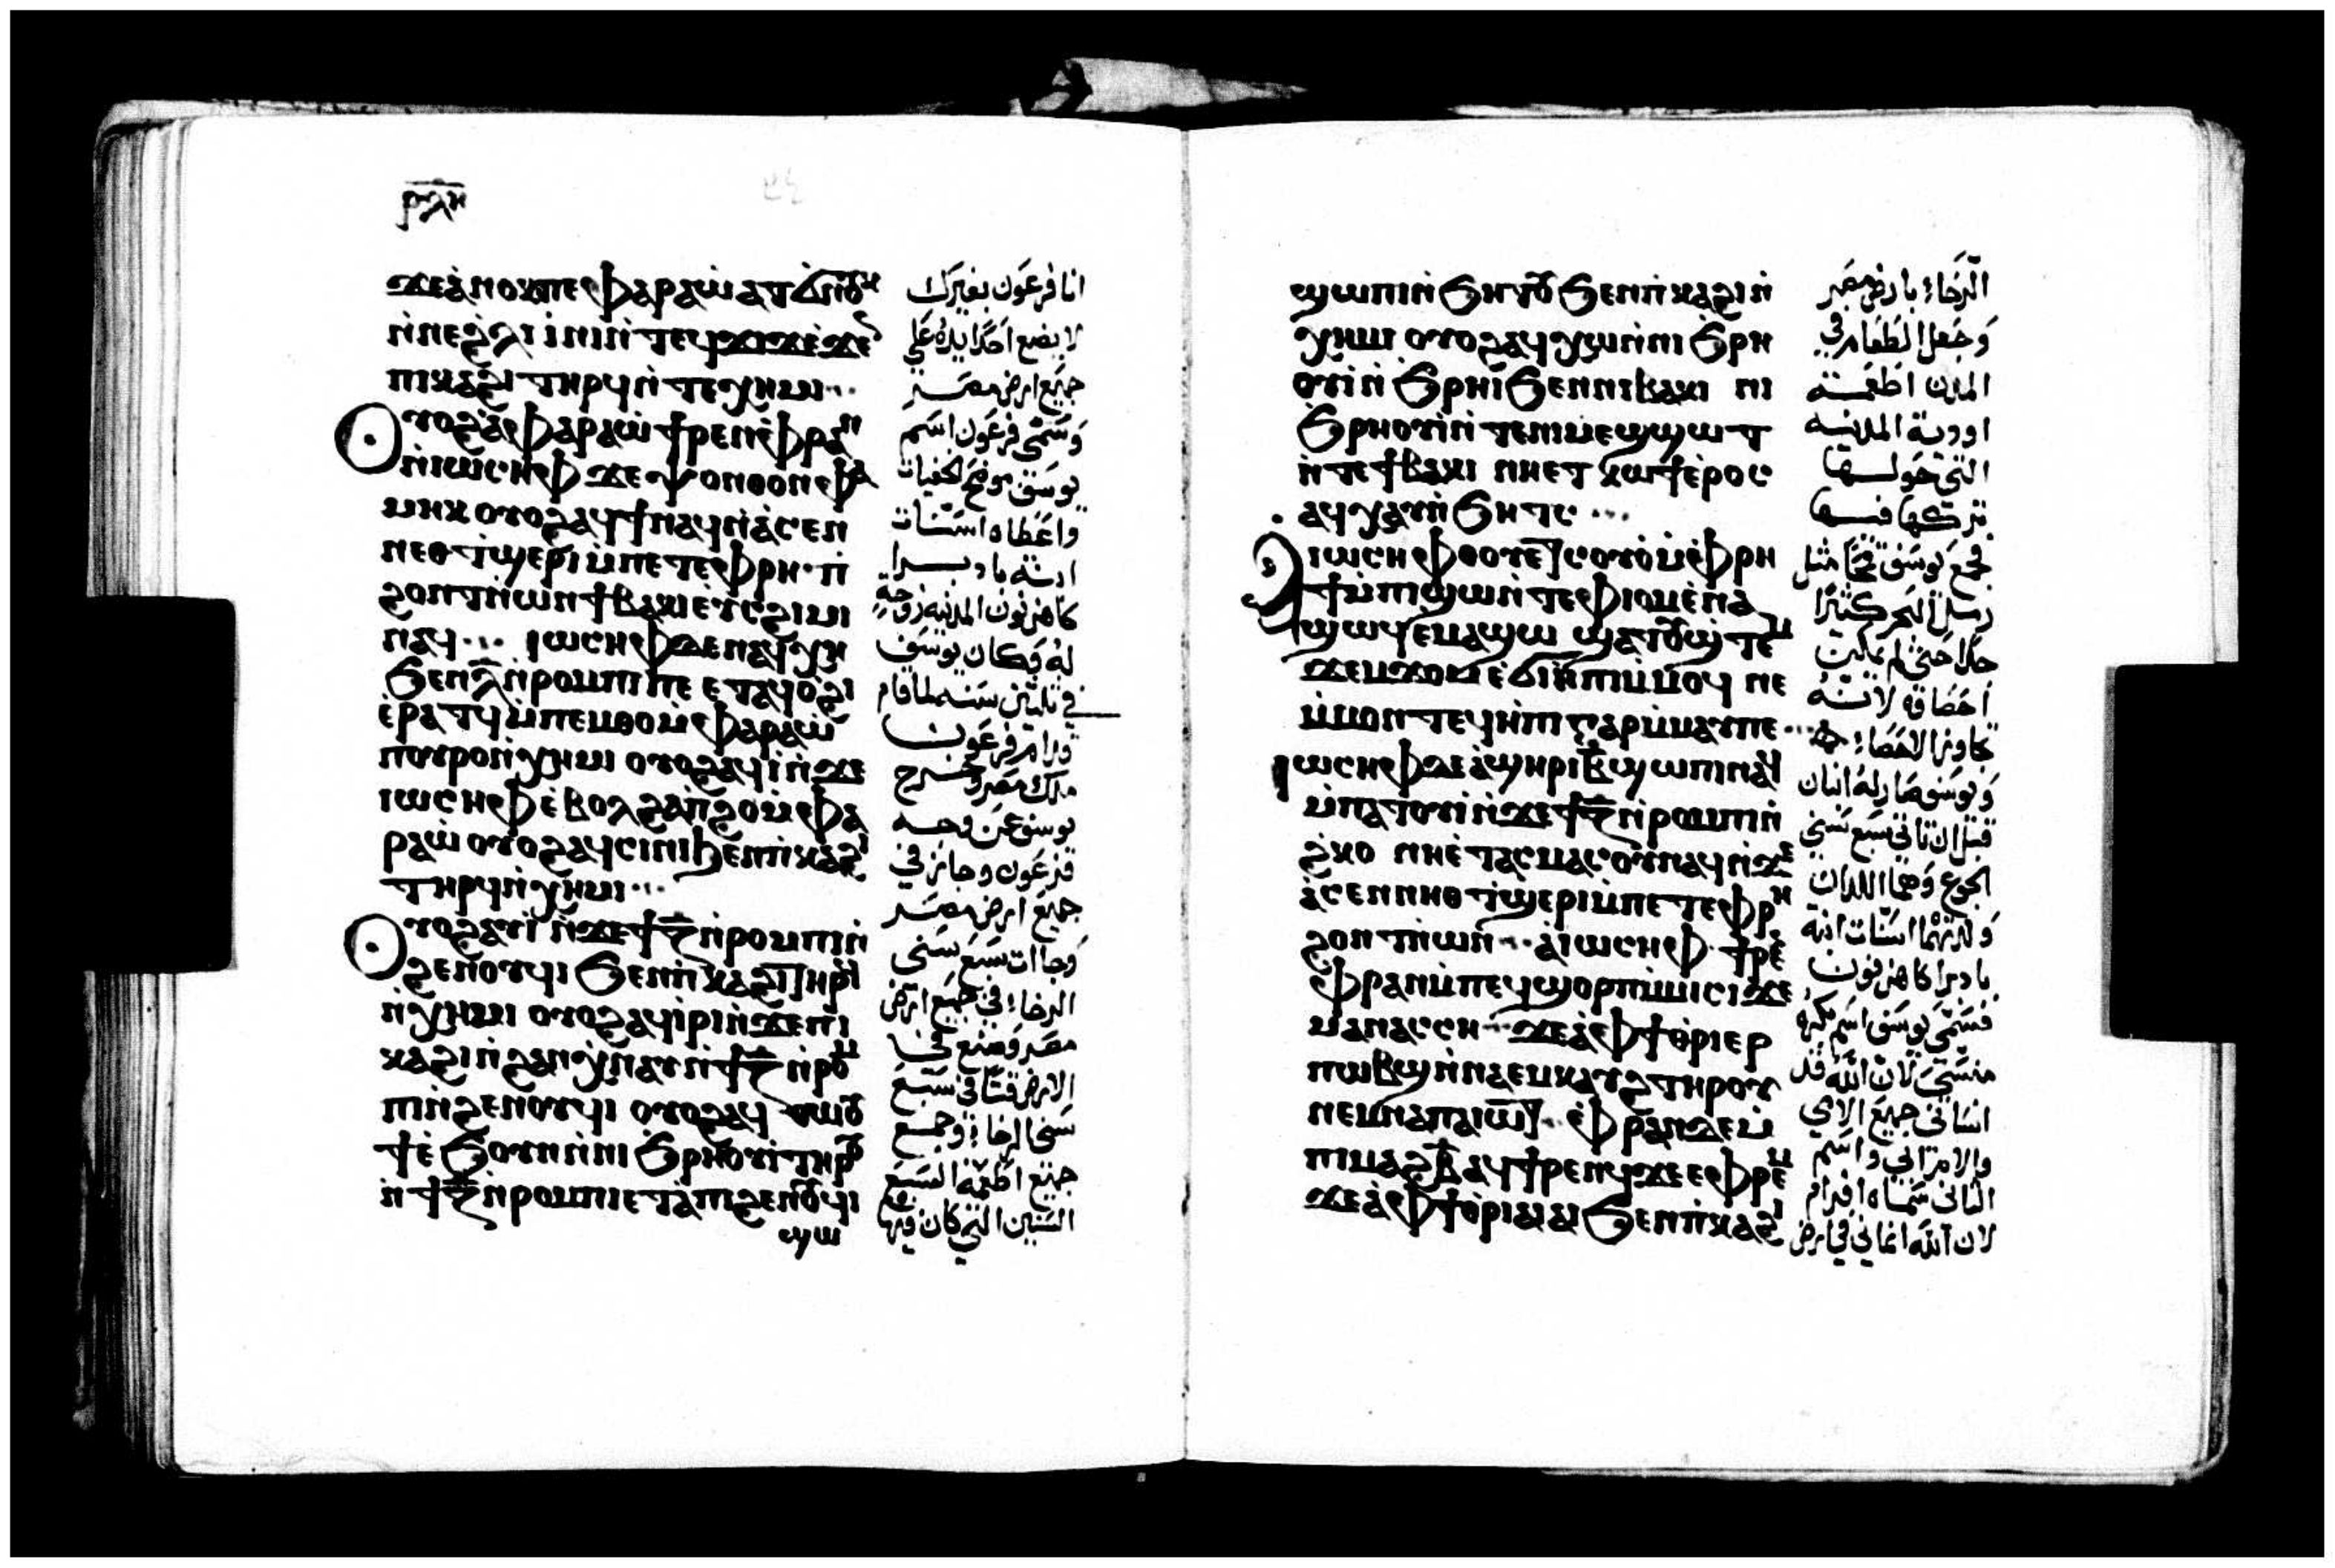 ⲣⲗⲏ
ϫⲉⲁ̀ⲛⲟⲕⲡⲉⲫⲁⲣⲁⲱ̀ⲁⲧϭⲛⲟⲩ
ⲛ̀ⲛⲉϩ̀ⲗⲓ ⲓ̀ⲛⲓⲛ̀ⲧⲉϥϫⲓϫⲉ̀ϫⲉ
ⲡⲓⲕⲁϩⲓ ⲧⲏⲣϥⲛ̀ⲧⲉⲭⲏⲙⲓ
ⲟⲩⲟϩⲁ̀ⲫⲁⲣⲁⲱ̀ ϯⲣⲉⲛⲉ̀ⲫⲣⲁⲛ
ⲛ̀ⲓⲱⲥⲏⲫ ϫⲉ ⲯⲟⲛⲑⲟⲙⲫⲁ
ⲙⲏⲕ ⲟⲩⲟϩⲁϥϯⲛⲁϥⲛ̀ⲁ̀ⲥⲉⲛ
ⲛⲉⲑ ⲧ̀ϣⲉⲣⲓⲙ̀ⲡⲉⲧⲉⲫⲣⲏ ⲡ̀
ϩⲟⲛⲧⲛ̀ⲱⲛ ϯⲃⲁⲕⲓⲉⲩⲥϩⲓⲙⲓ
ⲛⲁϥ ⲓⲱⲥⲏⲫ ⲇⲉⲛⲁϥⲭⲏ
ϧⲉⲛⲗ̅ⲛ̀ⲣⲟⲙⲡⲓⲡⲉ ⲉⲧⲁϥⲟ̀ϩⲓ
ⲉ̀ⲣⲁⲧϥ ⲙ̀ⲡⲉⲙⲑⲟⲙ̀ⲫⲁⲣⲁⲱ̀
ⲡⲟⲩⲣⲟⲛ̀ⲭⲏⲙⲓ ⲟⲩⲟϩⲁϥⲓ̀ ⲛ̀ϫⲉ
ⲓⲱⲥⲏⲫ ⲉ̀ⲃⲟⲗϩⲁⲡ̀ϩⲟⲙ̀ⲫⲁ
ⲣⲁⲱ̀ ⲟⲩⲟϩⲁϥⲥⲓⲛⲓϧⲉⲛⲡⲓⲕⲁϩⲓ
ⲧⲏⲣϥⲛ̀ⲭⲏⲙⲓ
ⲟⲩⲟϩⲁⲩⲓ̀ ⲛ̀ϫⲉϯⲍ̅ⲛ̀ⲣⲟⲙⲡⲓⲛ̀
ϩⲉⲛⲟⲩϥⲓ ϧⲉⲛⲡ̀ⲕⲁϩⲓⲧⲏⲣϥ
ⲛ̀ⲭⲏⲙⲓ ⲟⲩⲟϩⲁϥⲓ̀ⲣⲓⲛ̀ϫⲉⲡⲓ
ⲕⲁϩⲓⲛ̀ϩⲁⲛⲭ̀ⲛⲁⲩⲛ̀ϯⲍ̅ⲛ̀ⲣⲟⲙ
ⲡⲓⲛ̀ϩⲉⲛⲟⲩϥⲓ ⲟⲩⲟϩⲁϥⲑⲱⲟⲩ
ϯⲉ̀ϧⲟⲩⲛⲛ̀ⲛⲓϧⲣⲏⲟⲩⲓ̀ⲧⲏⲣⲟⲩ
ⲛ̀ϯⲍ̅ⲛ̀ⲣⲟⲙⲡⲓⲉⲧⲁⲡⲓϩⲉⲛⲟⲩϥⲓ
ϣⲱ
انا فرعون بغيرك
لا يضع احدا يده على
جميع ارض مصر
وسمى فرعون اسم
يوسف موضح الخفيات
واعطاه اسنات
ابنة بادبرا
كاهن نون المدينه زوجة
له وكان يوسف
في ثلثين سنه لما قام
قدام فرعون
ملك مصر وخرج
يوسف عن وجه
فرعون وجاز في
جميع ارض مصر
وجاات سبع سنى
الرخا في جميع ارض
مصر وصنع في
الارض قتا في سبع
سنى الرخا وجمع
جميع اطعمة السبع
السنين التي كان فيها
ϣⲱⲡⲓⲛ̀ϧⲏⲧⲟⲩ ϧⲉⲛⲡ̀ⲕⲁϩⲓⲛ̀
ⲭⲏⲙⲓ ⲟⲩⲟϩⲁϥⲭⲱⲛ̀ⲛⲓϧⲣⲏ
ⲟⲩⲓ̀ ⲛ̀ϧⲣⲏⲓϧⲉⲛⲛⲓⲃⲁⲕⲓ ⲛⲓ
ϧⲣⲏⲟⲩⲓ̀ⲛ̀ⲧⲉⲛⲓⲙⲉϣϣⲱⲧ
ⲛ̀ⲧⲉϯⲃⲁⲕⲓ ⲛⲏⲉⲧⲕⲱϯⲉ̀ⲣⲟⲥ
ⲁϥⲭⲁⲩⲛ̀ϧⲏⲧⲥ
ⲁ̀ⲓⲱⲥⲏⲫ ⲑⲟⲩⲉⲧⲥⲟⲩⲟ̀ⲙ̀ⲫⲣⲏ
ϯⲙ̀ⲡⲓϣⲱⲛ̀ⲧⲉⲫⲓⲟⲙⲉ̀ⲛⲁ
ϣⲱϥⲉⲙⲁϣⲱ ϣⲁⲧⲟⲩϣ̀ⲧⲉⲙ
ϫⲉⲙϫⲟⲙⲉ̀ϭⲓⲏⲡⲓⲙ̀ⲙⲟϥ ⲛⲉ
ⲙ̀ⲙⲟⲛⲧⲉϥⲏ̀ⲡⲓⲅⲁⲣⲙ̀ⲙⲁⲩⲡⲉ
ⲓⲱⲥⲏⲫ ⲇⲉⲁ̀ϣⲏⲣⲓⲃ̅ϣⲱⲡⲓⲛⲁϥ
ⲙ̀ⲡⲁⲧⲟⲩⲓ̀ⲛ̀ϫⲉϯⲍ̅ⲛ̀ⲣⲟⲙⲡⲓⲛ̀
ϩ̀ⲕⲟ ⲛⲏⲉ̀ⲧⲁⲥⲙⲁⲥⲟⲩⲛⲁϥⲛ̀ϫⲉ
ⲁ̀ⲥⲉⲛⲛⲏⲑ ⲧ̀ϣⲉⲣⲓⲙ̀ⲡⲉⲧⲉⲫⲣⲏ
ϩⲟⲛⲧⲛ̀ⲱⲛ ⲁ̀ⲓⲱⲥⲏⲫ ϯⲣⲉ
ⲫⲣⲁⲛⲙ̀ⲡⲉϥϣⲟⲣⲡⲙ̀ⲙⲓⲥⲓ ϫⲉ
ⲙⲁⲛⲁⲥⲥⲏ ϫⲉⲁ̀ⲫϯⲑⲣⲓⲉⲣ
ⲡⲱⲃϣⲛ̀ⲛⲁⲉⲙⲕⲁⲩϩⲧⲏⲣⲟⲩ
ⲛⲉⲙⲛⲁⲡⲁⲓⲱⲧ ⲉ̀ⲫⲣⲁⲛⲇⲉⲙ̀
ⲡⲓⲙⲁϩⲃ̅ ⲁϥϯⲣⲉⲛϥϫⲉⲉⲫⲣⲉⲙ
ϫⲉⲁ̀ⲫϯⲑ̀ⲣⲓⲁⲓⲁⲓ ϧⲉⲛⲡ̀ⲕⲁϩⲓ
الرخا بارض مصر
وجعل الطعام في
المدن اطعمة
اودية المدينه
التي حولها
تركها فيها
فجمع يوسف قمحا مثل
رمل البحر كثيرا
جدا حتى لم يمكن
احصاوه لانه
كاوزا لاحصا
ويوسف صار له ابنان
قبل ان تاتي سبع سنى
الجوع وهما اللذان
ولدتهما اسنات ابنة
بادبرا كاهن نون
فسمى يوسف اسم بكره
منسي لان الله قد
انساني جميع الامي
والامر ابي واسم
الثاني سماه افرام
لان الله انماني في ارض